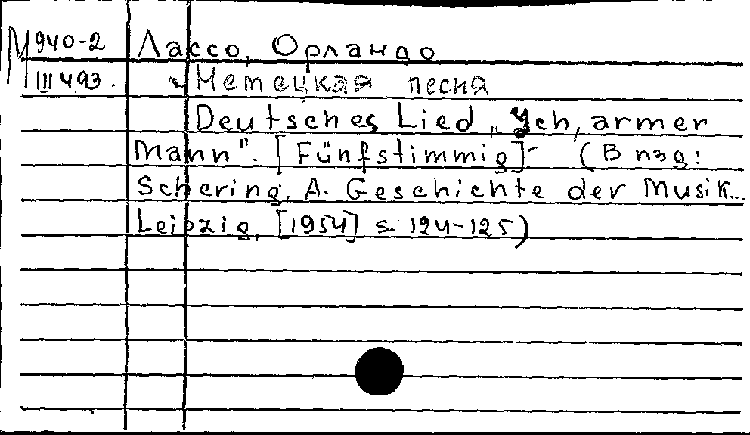 М 940-2 Лассо, Орландо
III 493. Немецкая песня
Deutsches Lied „Ich, armer
Mann". [Fünfstimmig] - (В изд:
Schering, A. Geschichte der Musik..
Leipzig, [1954] S. 124-125)